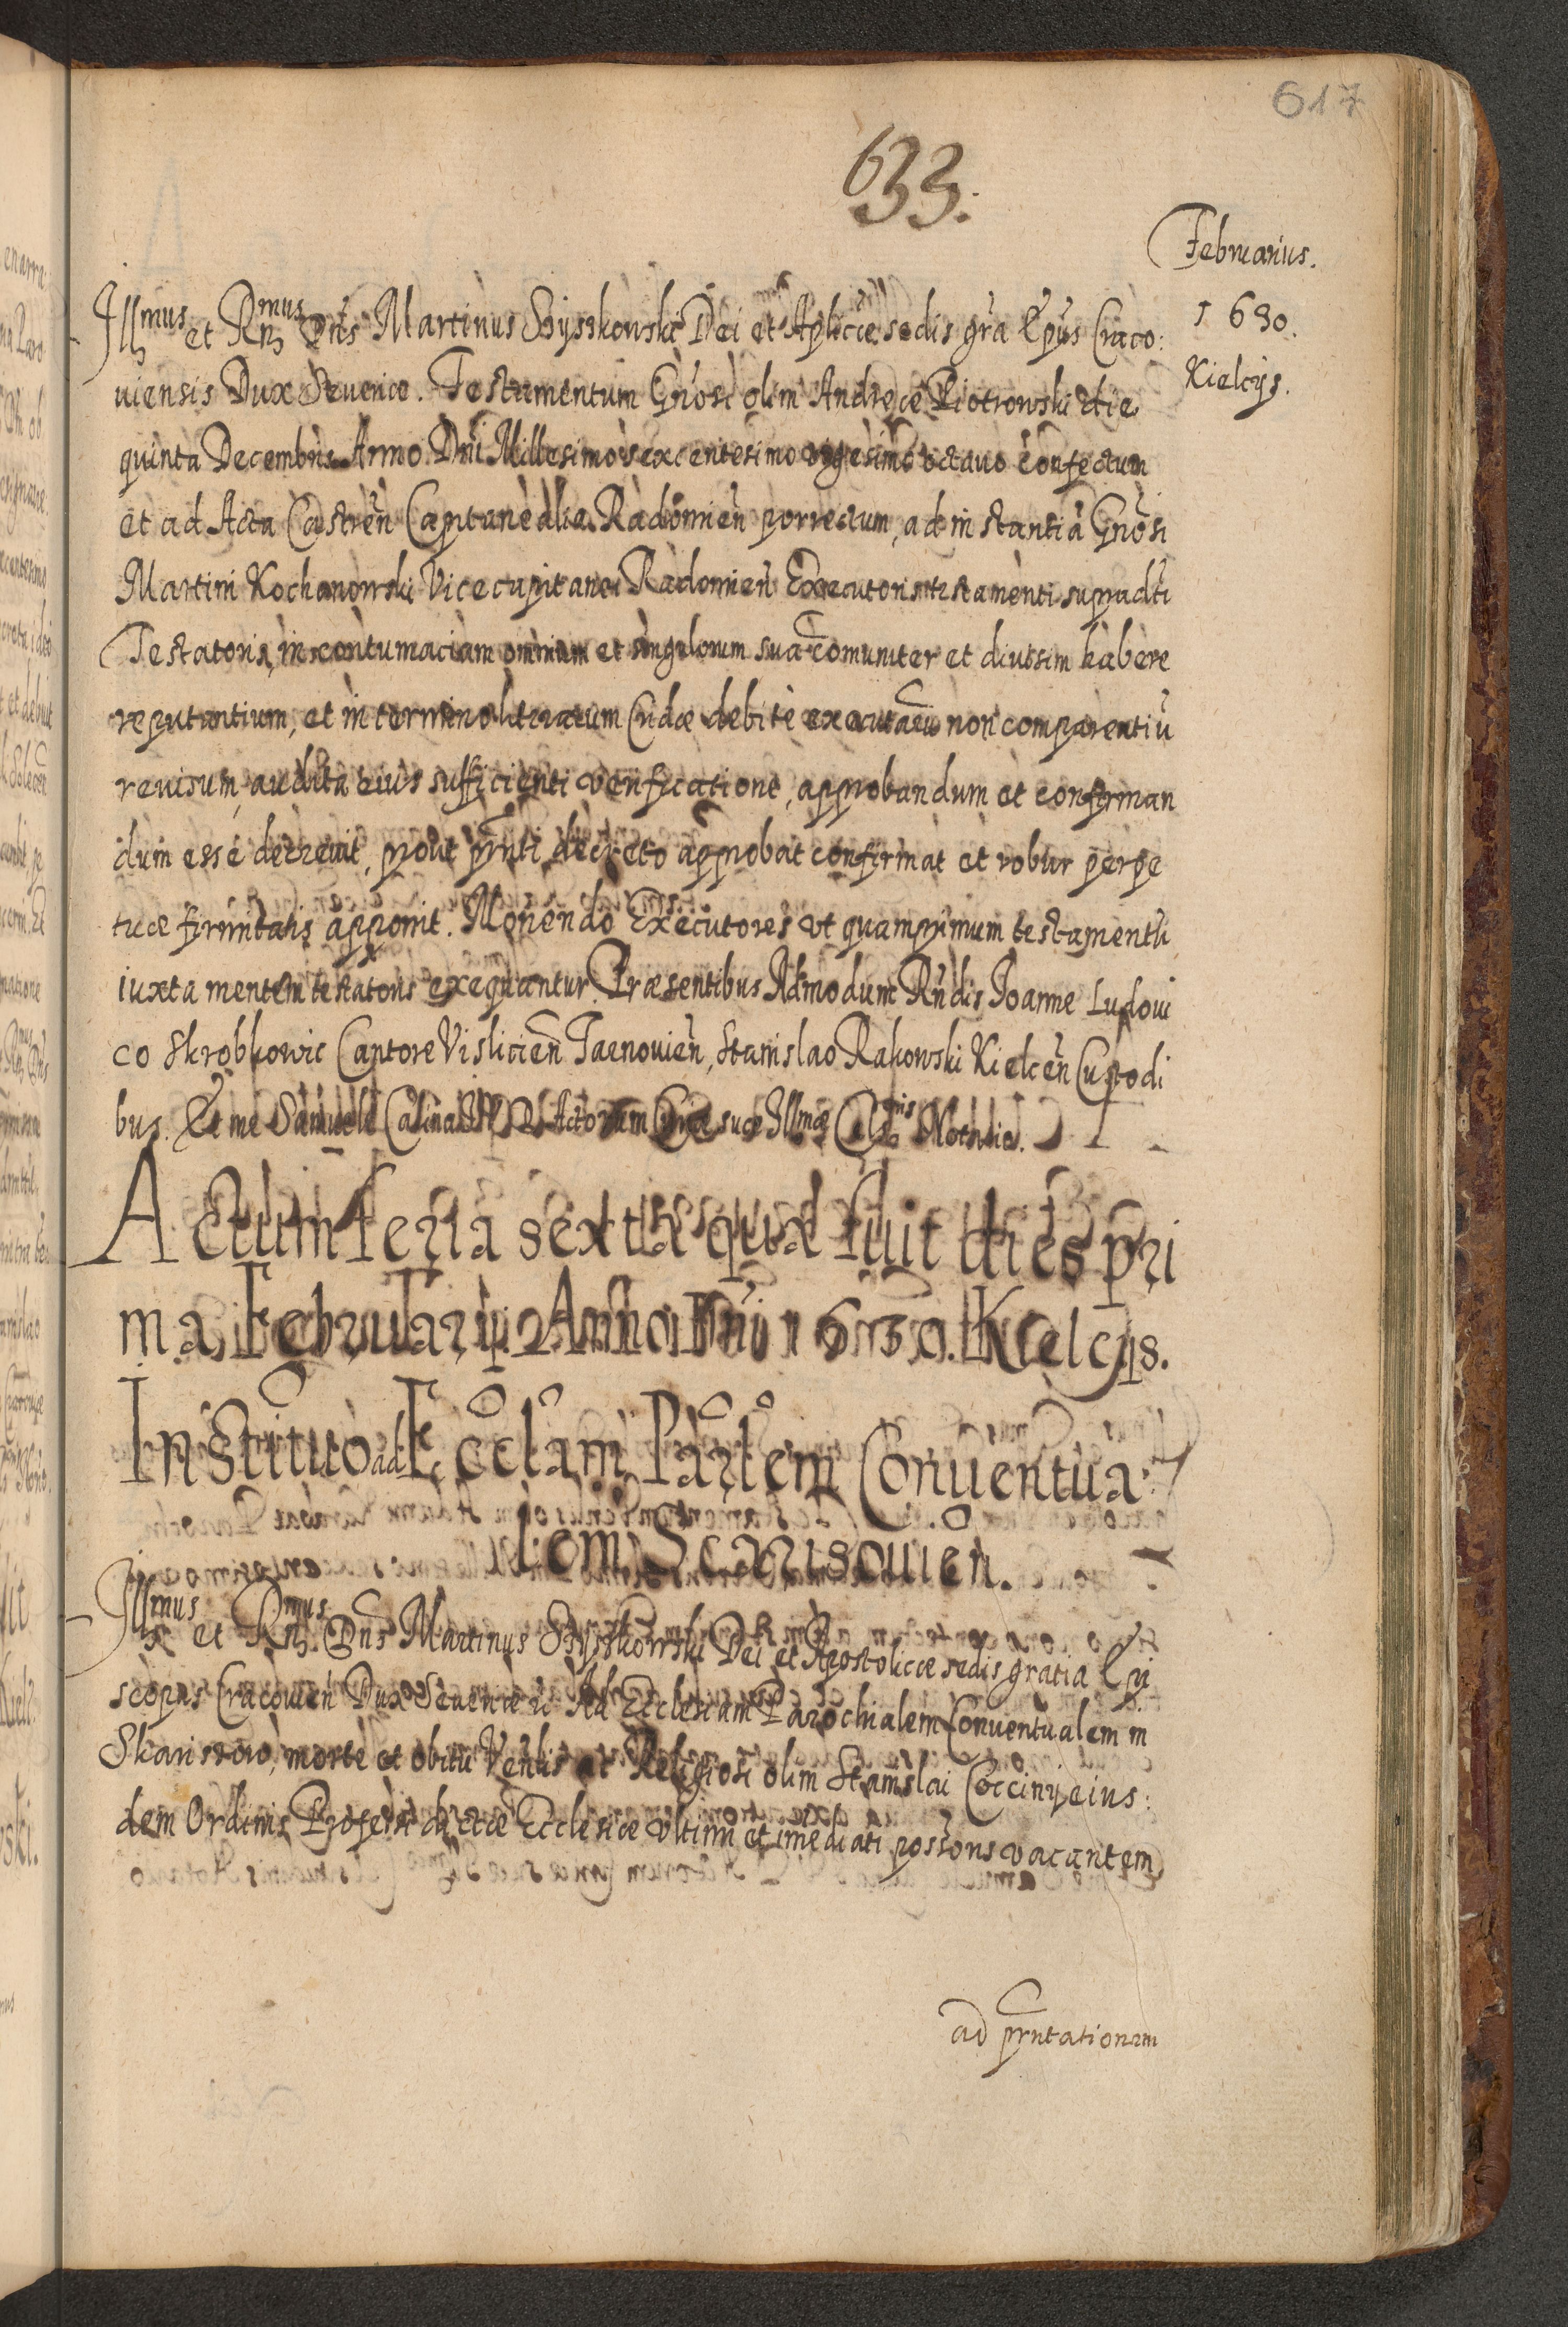 617
633.
Februarius.
1630.
Kielcijs.
Illmus et Rndmus Dns Martinus Szyszkowski Dei et Aplicæ sedis gra Epus Craco:
uiensis Dux Seueriæ. Testamentum Gnosi olim Andreæ Piotrowski die
quinta Decembris Anno Dni Millesimo sexcentesimo vigesimo octauo confectum
et ad Acta Castren Captanealia Radomien porrectum, ad instantia Gnosi
Martini Kochanowski Vicecapitanei Radomien Executoris testamenti supradti
Testatoris, in contumaciam omnium et singulorum sua comuniter et diuisim habere
reputantium, et in termino literarum Cridæ debite executaru non comparentiu
reuisum, audita eius sufficienti verificatione, approbandum et confirman
dum esse decreuit, prout prnti decreto approbat confirmat et robur perpe
tuæ firmitatis apponit. Monendo Executores vt quamprimum testamentu
iuxta mentem testatoris exequantur. Præsentibus Admodum Rndis Joanne Ludoui
co Skrobkowic Cantore Vislicien Tarnouien, Stanislao Rakowski Kielcen Custodi
bus. Et me Samuele Actorum Curiæ suæ Illmæ Notario.
Actum feria sexta quæ fuit dies pri
ma Februarij Anno Dni 1630. Kielcijs.
Institutio ad Ecclam Parlem Conuentua:
lem Scarisouien.
Illmus et Rndmus Dns Martinus Szyszkowski Dei et Apostolicæ sedis gratia Epi
scopus Cracouien Dux Seueriæ etc Ad Ecclesiam Parochialem Conuentualem in
Skarissow, morte et obitu Venlis et Religiosi olim Stanislai Coccinij eius:
dem Ordinis Professi dictæ Ecclesiæ vltimi et imediati possoris vacantem
ad prntationem